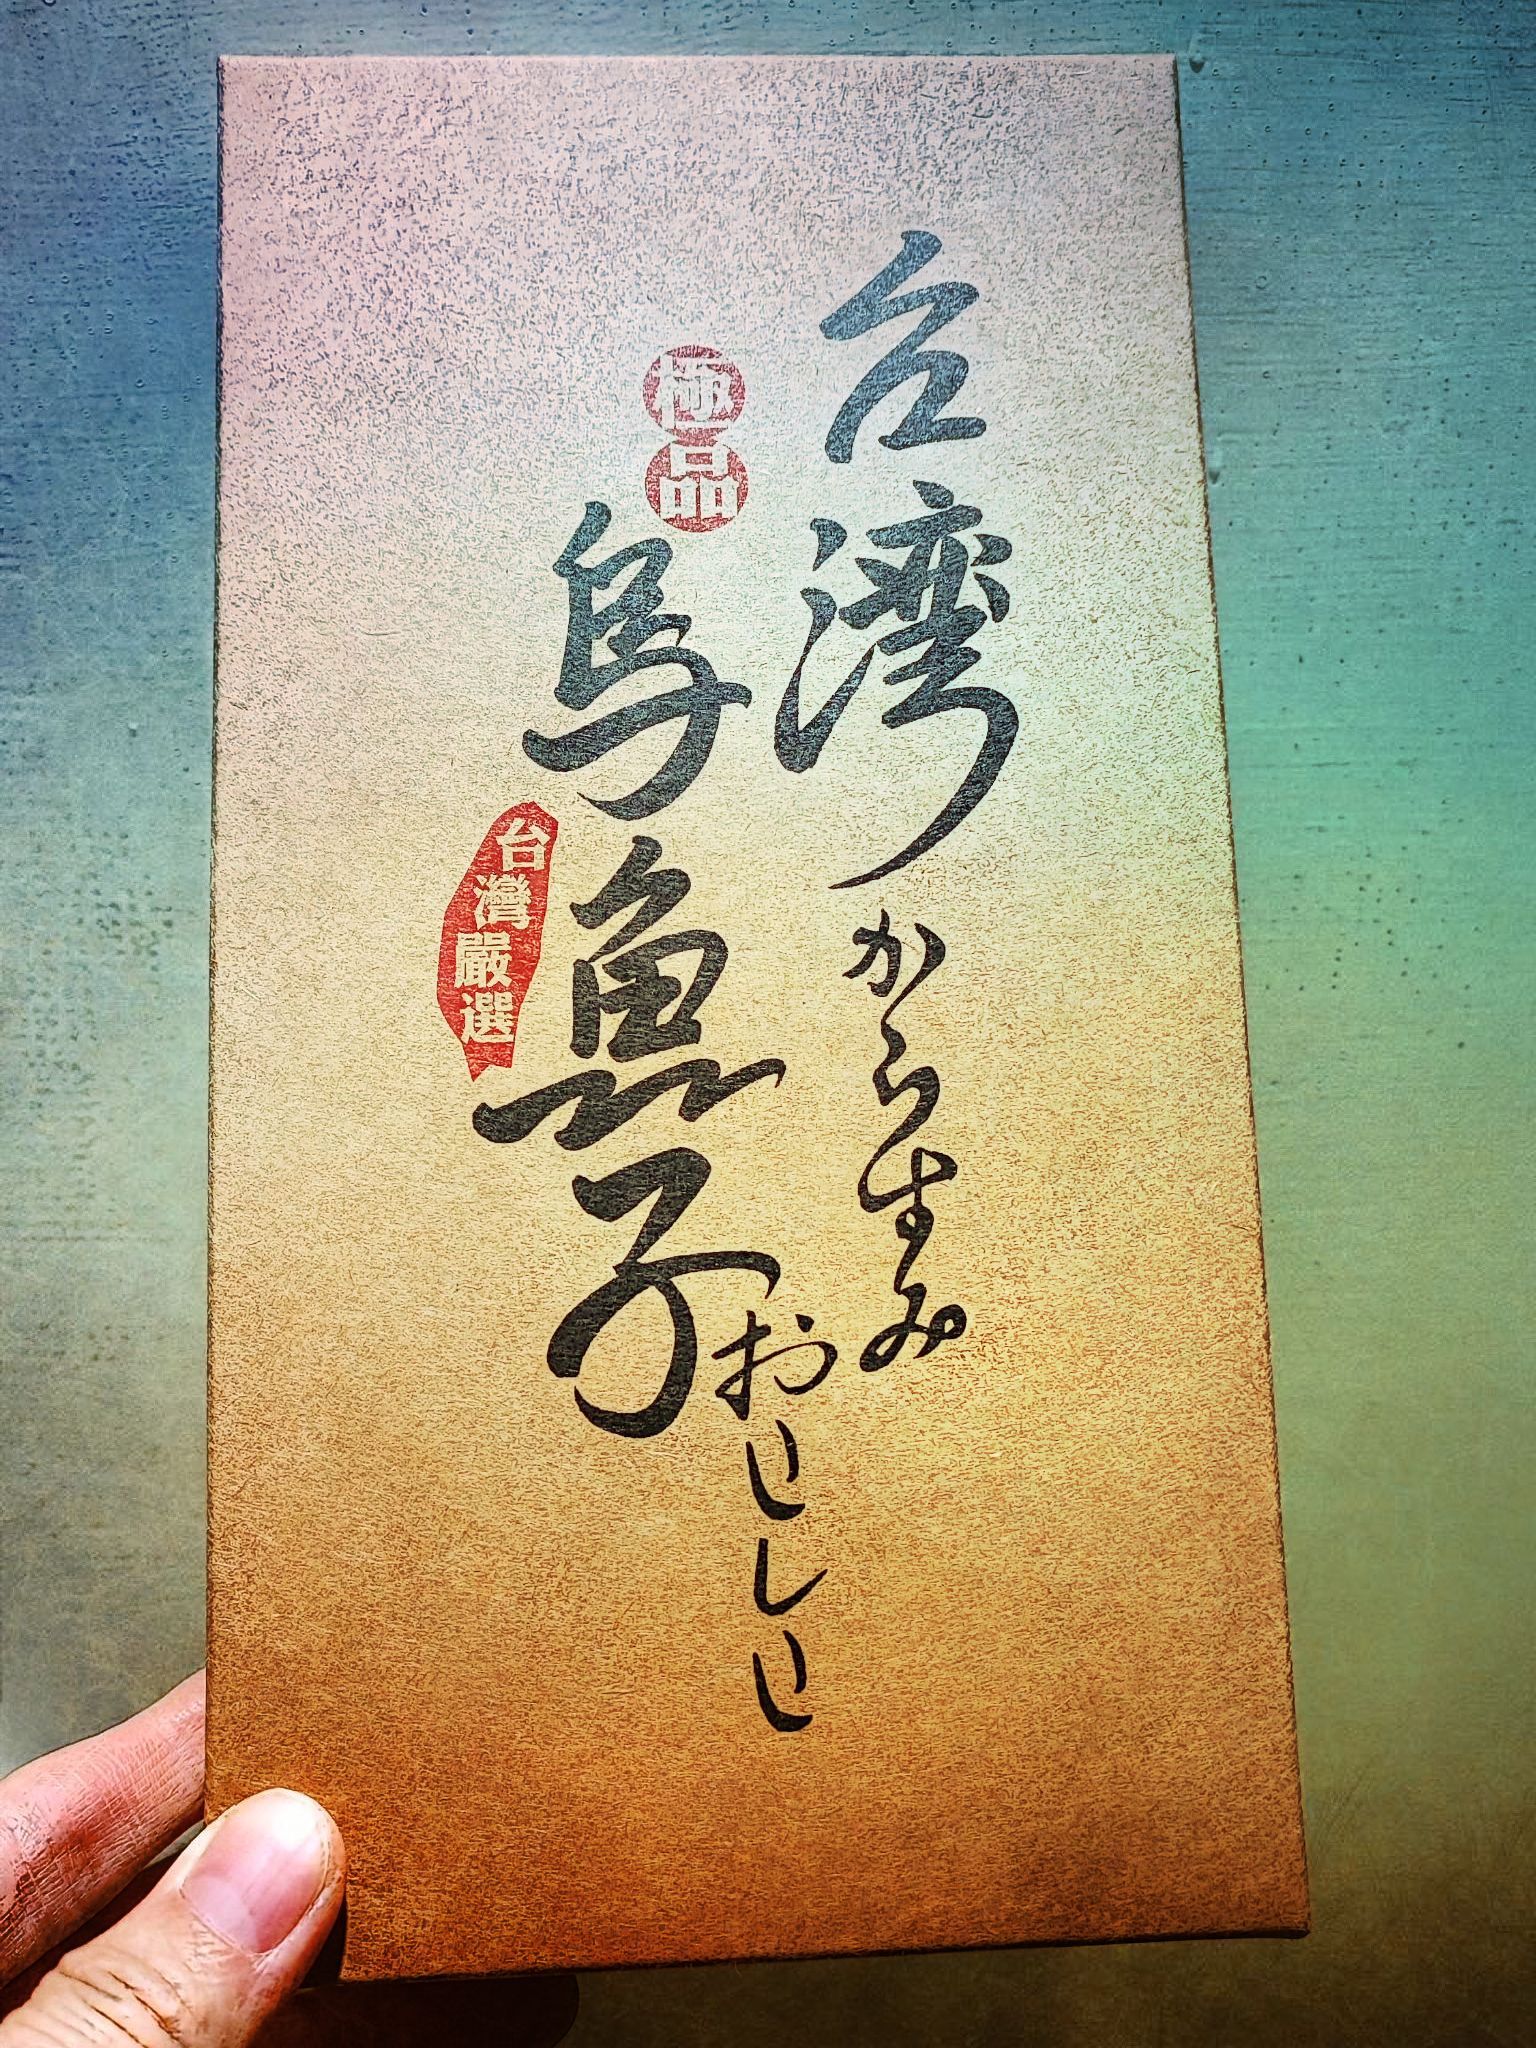 台湾からすみ
極品
烏魚子おいしい
台灣嚴選